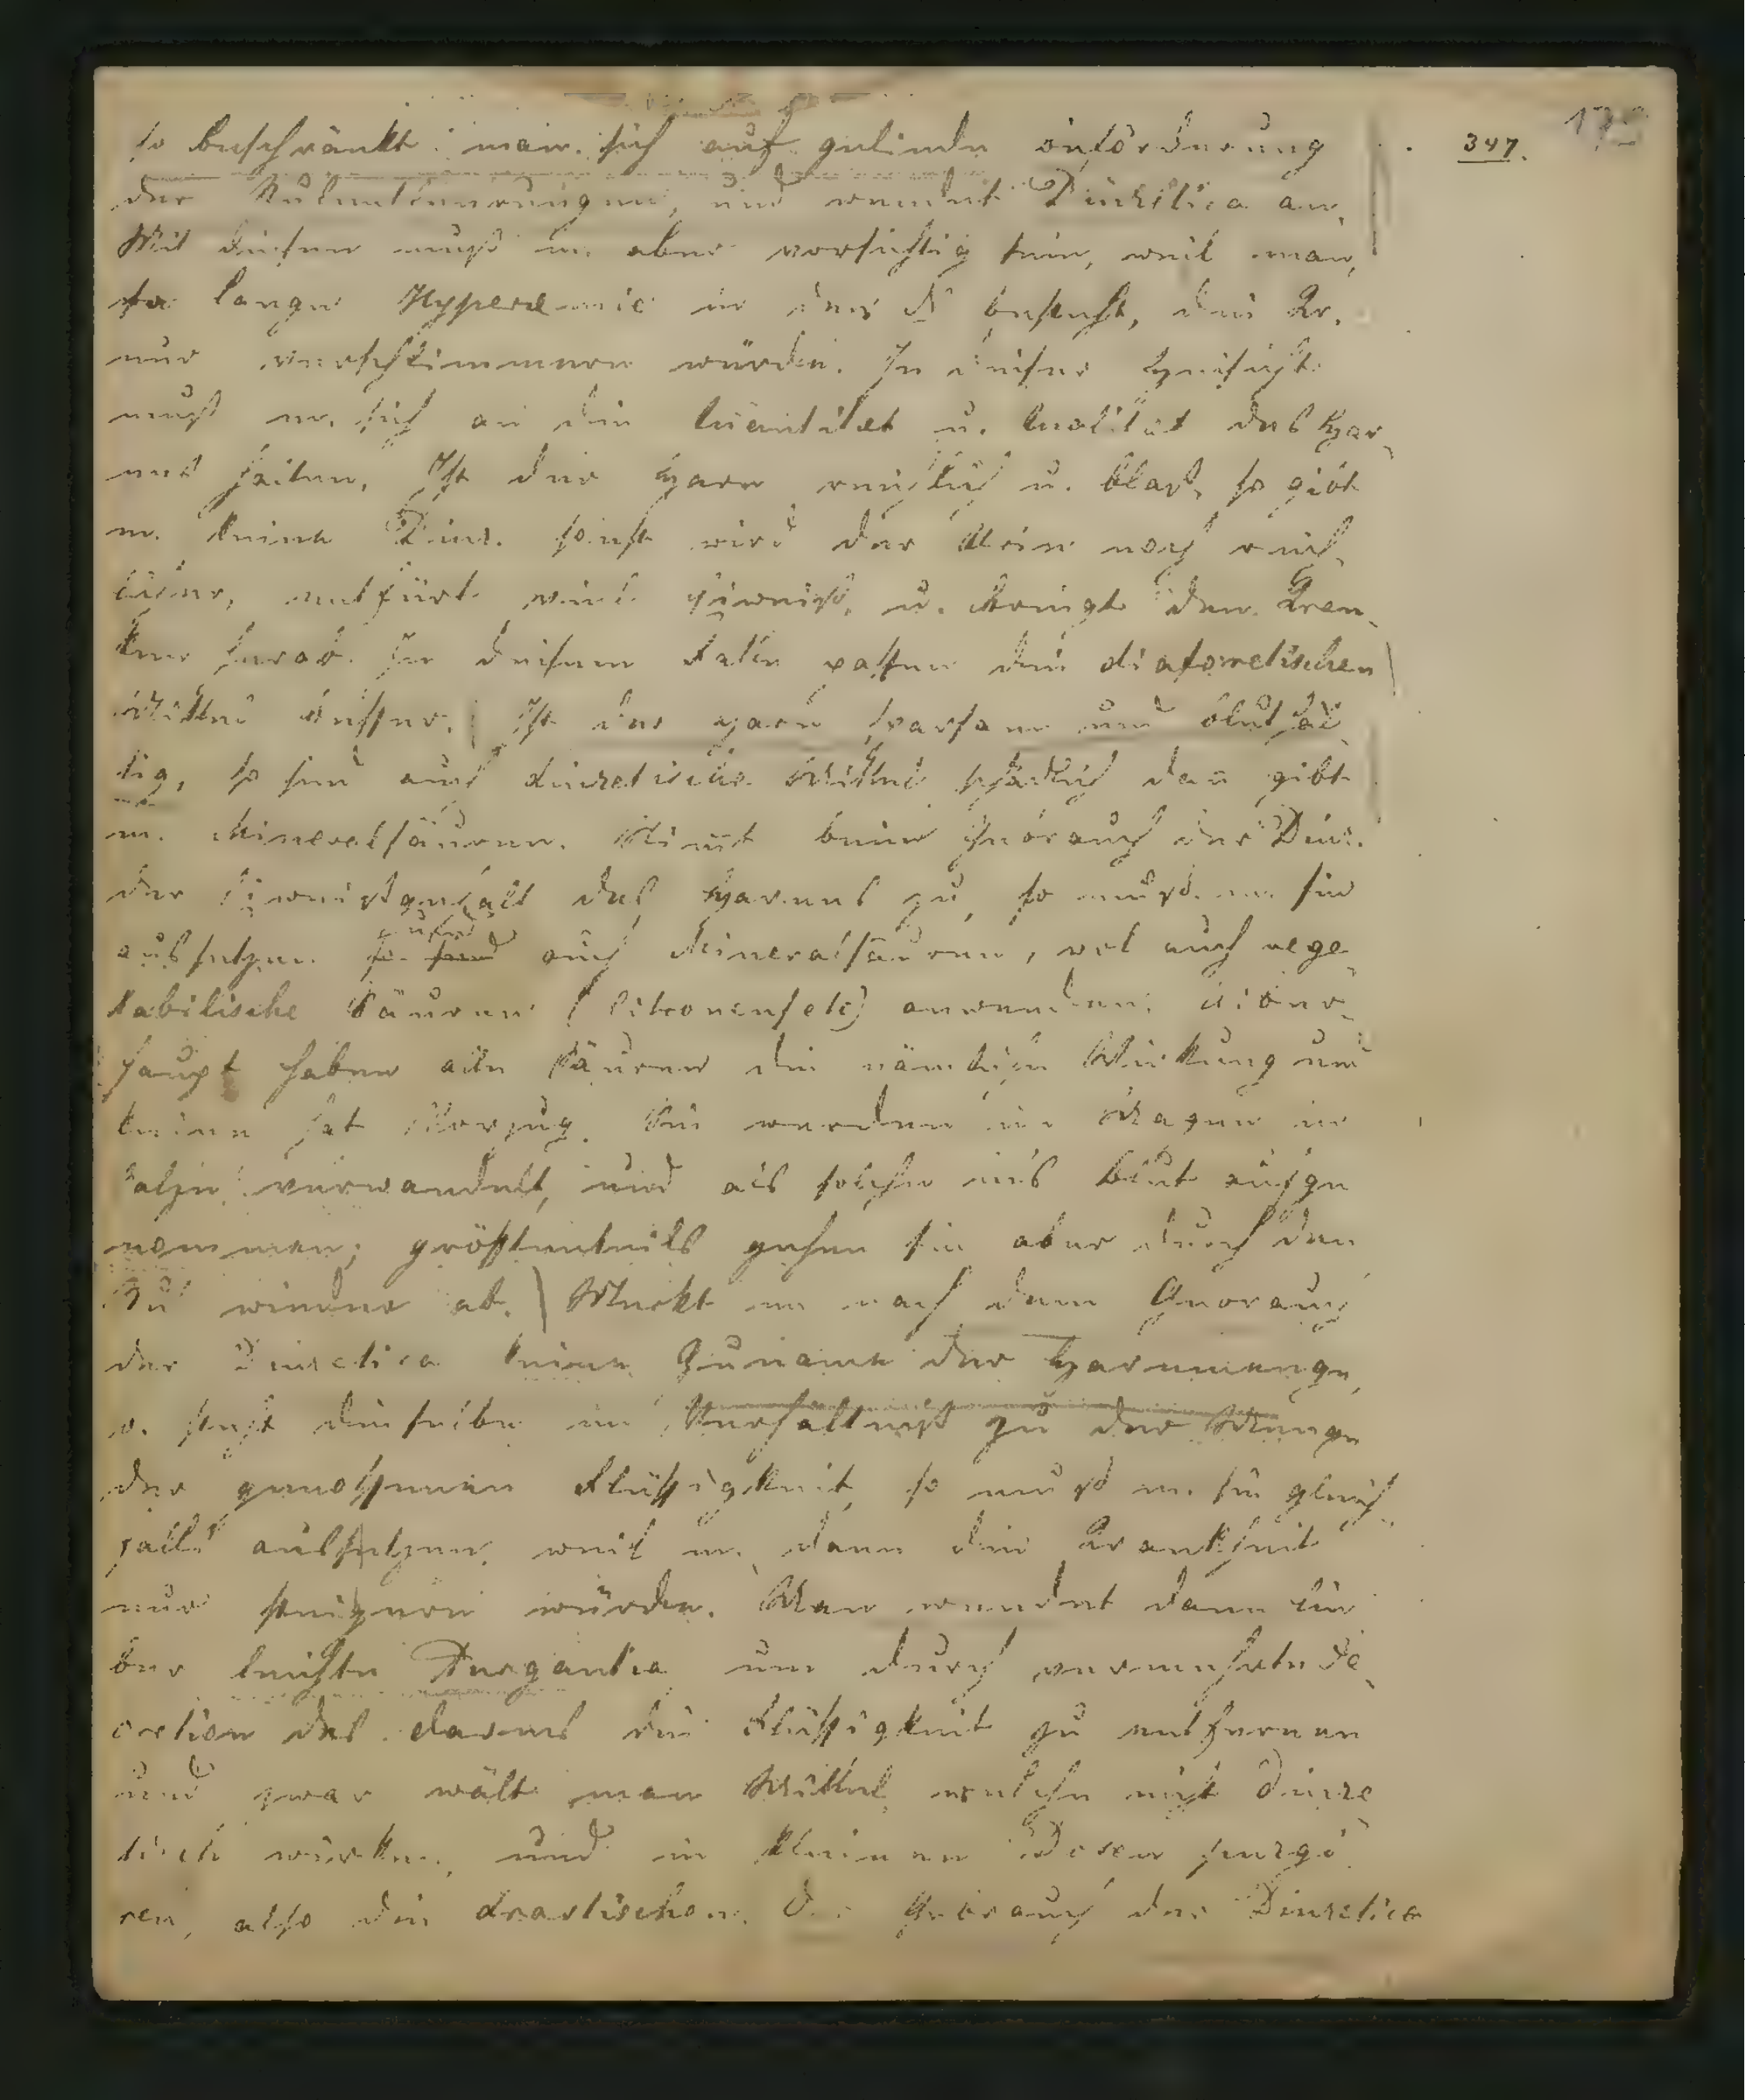 347.
so beschränkt man sich auf gelinde Beförderung
der Stulentleerungen, und wendet Diuretica an.
Mit diesen muß m. aber vorsichtig sein, weil man,
so lange Hyperemie in der besteht, die Kr.
nur verschlimmern würde. In dieser Hinsicht
muß m. sich an die Quantitet u. Qualität des Har-
nes halten. Ist der Harn reichlich u. blaß, so gibt
m. keine Diur. sonst wird der Urin noch reich-
licher, entfürt viel Eiweiß, u. bringt den Kran-
ken herab. In diesem Falle passen die diaforetischen
Mittel besser. Ist der Harn sparsam und bluthäl-
tig, so sind auch diuretische Mittel schädlich dan gibt
m. Mineralsäuren. Nimt beim Gebrauch der Diur.
der Eiweißgehalt des Harnes zu, so muß m. sie
aussetzen auch Mineralsäuren, vel auch vege-
tabilische Säuren (Citronensft) anwenden. Über-
haupt haben alle Säuren die nämliche Wirkung und
keine hat Vorzug. Sie werden im Magen in
Salze verwandelt, und als solche ins Blut aufge
nommen; größtenteils gehen sie aber durch den
Stul wieder ab. Merkt m. nach dem Gebrauch
der Diuretica keine Zuname der Harnmenge,
o. steht dieselbe im Verhältniß zu der Menge
der genossenen Flüssigkeit, so muß m. sie gleich-
falls aussetzen, weil m. dann die Krankheit
nur steigern würde. Man wendet dann lie
ber leichte Purgantia um durch vermehrte Se-
cretion des Darmes die Flüssigkeit zu entfernen
und zwar wält man Mittel, welche nicht diure
tisch wirken, und in kleinen Dosen purgi
ren, also die drastischen. Der Gebrauch der Diuretica